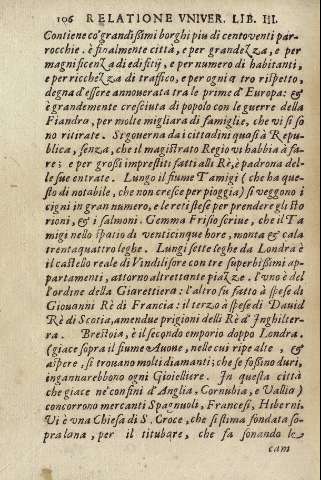 106 RELATIONE VNIVER. LIB. III.
Contiene cō grandissimi borghi piu di centouenti par-
rocchie. è finalmente città, e per grandezza, e per
magnificenza di edificij, e per numero di habitanti,
e per ricchezza di traffico, e per ogni altro rispetto,
degna d'essere annouerata tra le prime d'Europa: &
è grandemente cresciuta di popolo con le guerre della
Fiandra, per molte migliara di famiglie, che vi si so
no ritirate. Si gouerna da i cittadini quasi à Repu
blica, senza, che il magistrato Regio vi habbia à fa-
re; e per grossi imprestiti fatti alli Rè, è padrona del-
le sue entrate. Lungo il fiume Tamigi (che ha que-
sto di notabile, che non cresce per pioggia) si veggono i
cigni in gran numero, e le reti stese per prender gli sto
rioni, & i salmoni. Gemma Frisio scriue, che il Ta
migi nello spatio di venticinque hore, monta & cala
trentaquattro leghe. Lungi sette leghe da Londra è
il castello reale di Vindilisore con tre superbissimi ap-
partamenti, attorno altrettante piazze. l'vno è del
l'ordine della Giarettiera: l'altro fu fatto à spese di
Giouanni Rè di Francia: il terzo à spese di Dauid
Rè di Scotia, amendue prigioni delli Rè d'Inghilter
ra. Brestoia, è il secondo emporio doppo Londra.
(giace sopra il fiume Auone, nelle cui ripe alte, &
aspere, si trouano molti diamanti; che se fossino duri,
ingannarebbono ogni Gioielliere. In questa città
che giace ne' confini d'Anglia, Cornubia, e Vallia)
concorrono mercanti Spagnuoli, Francesi, Hiberni.
Vi è vna Chiesa di S. Croce, che si stima fondata so-
pra lana, per il titubare, che fa sonando le
cam